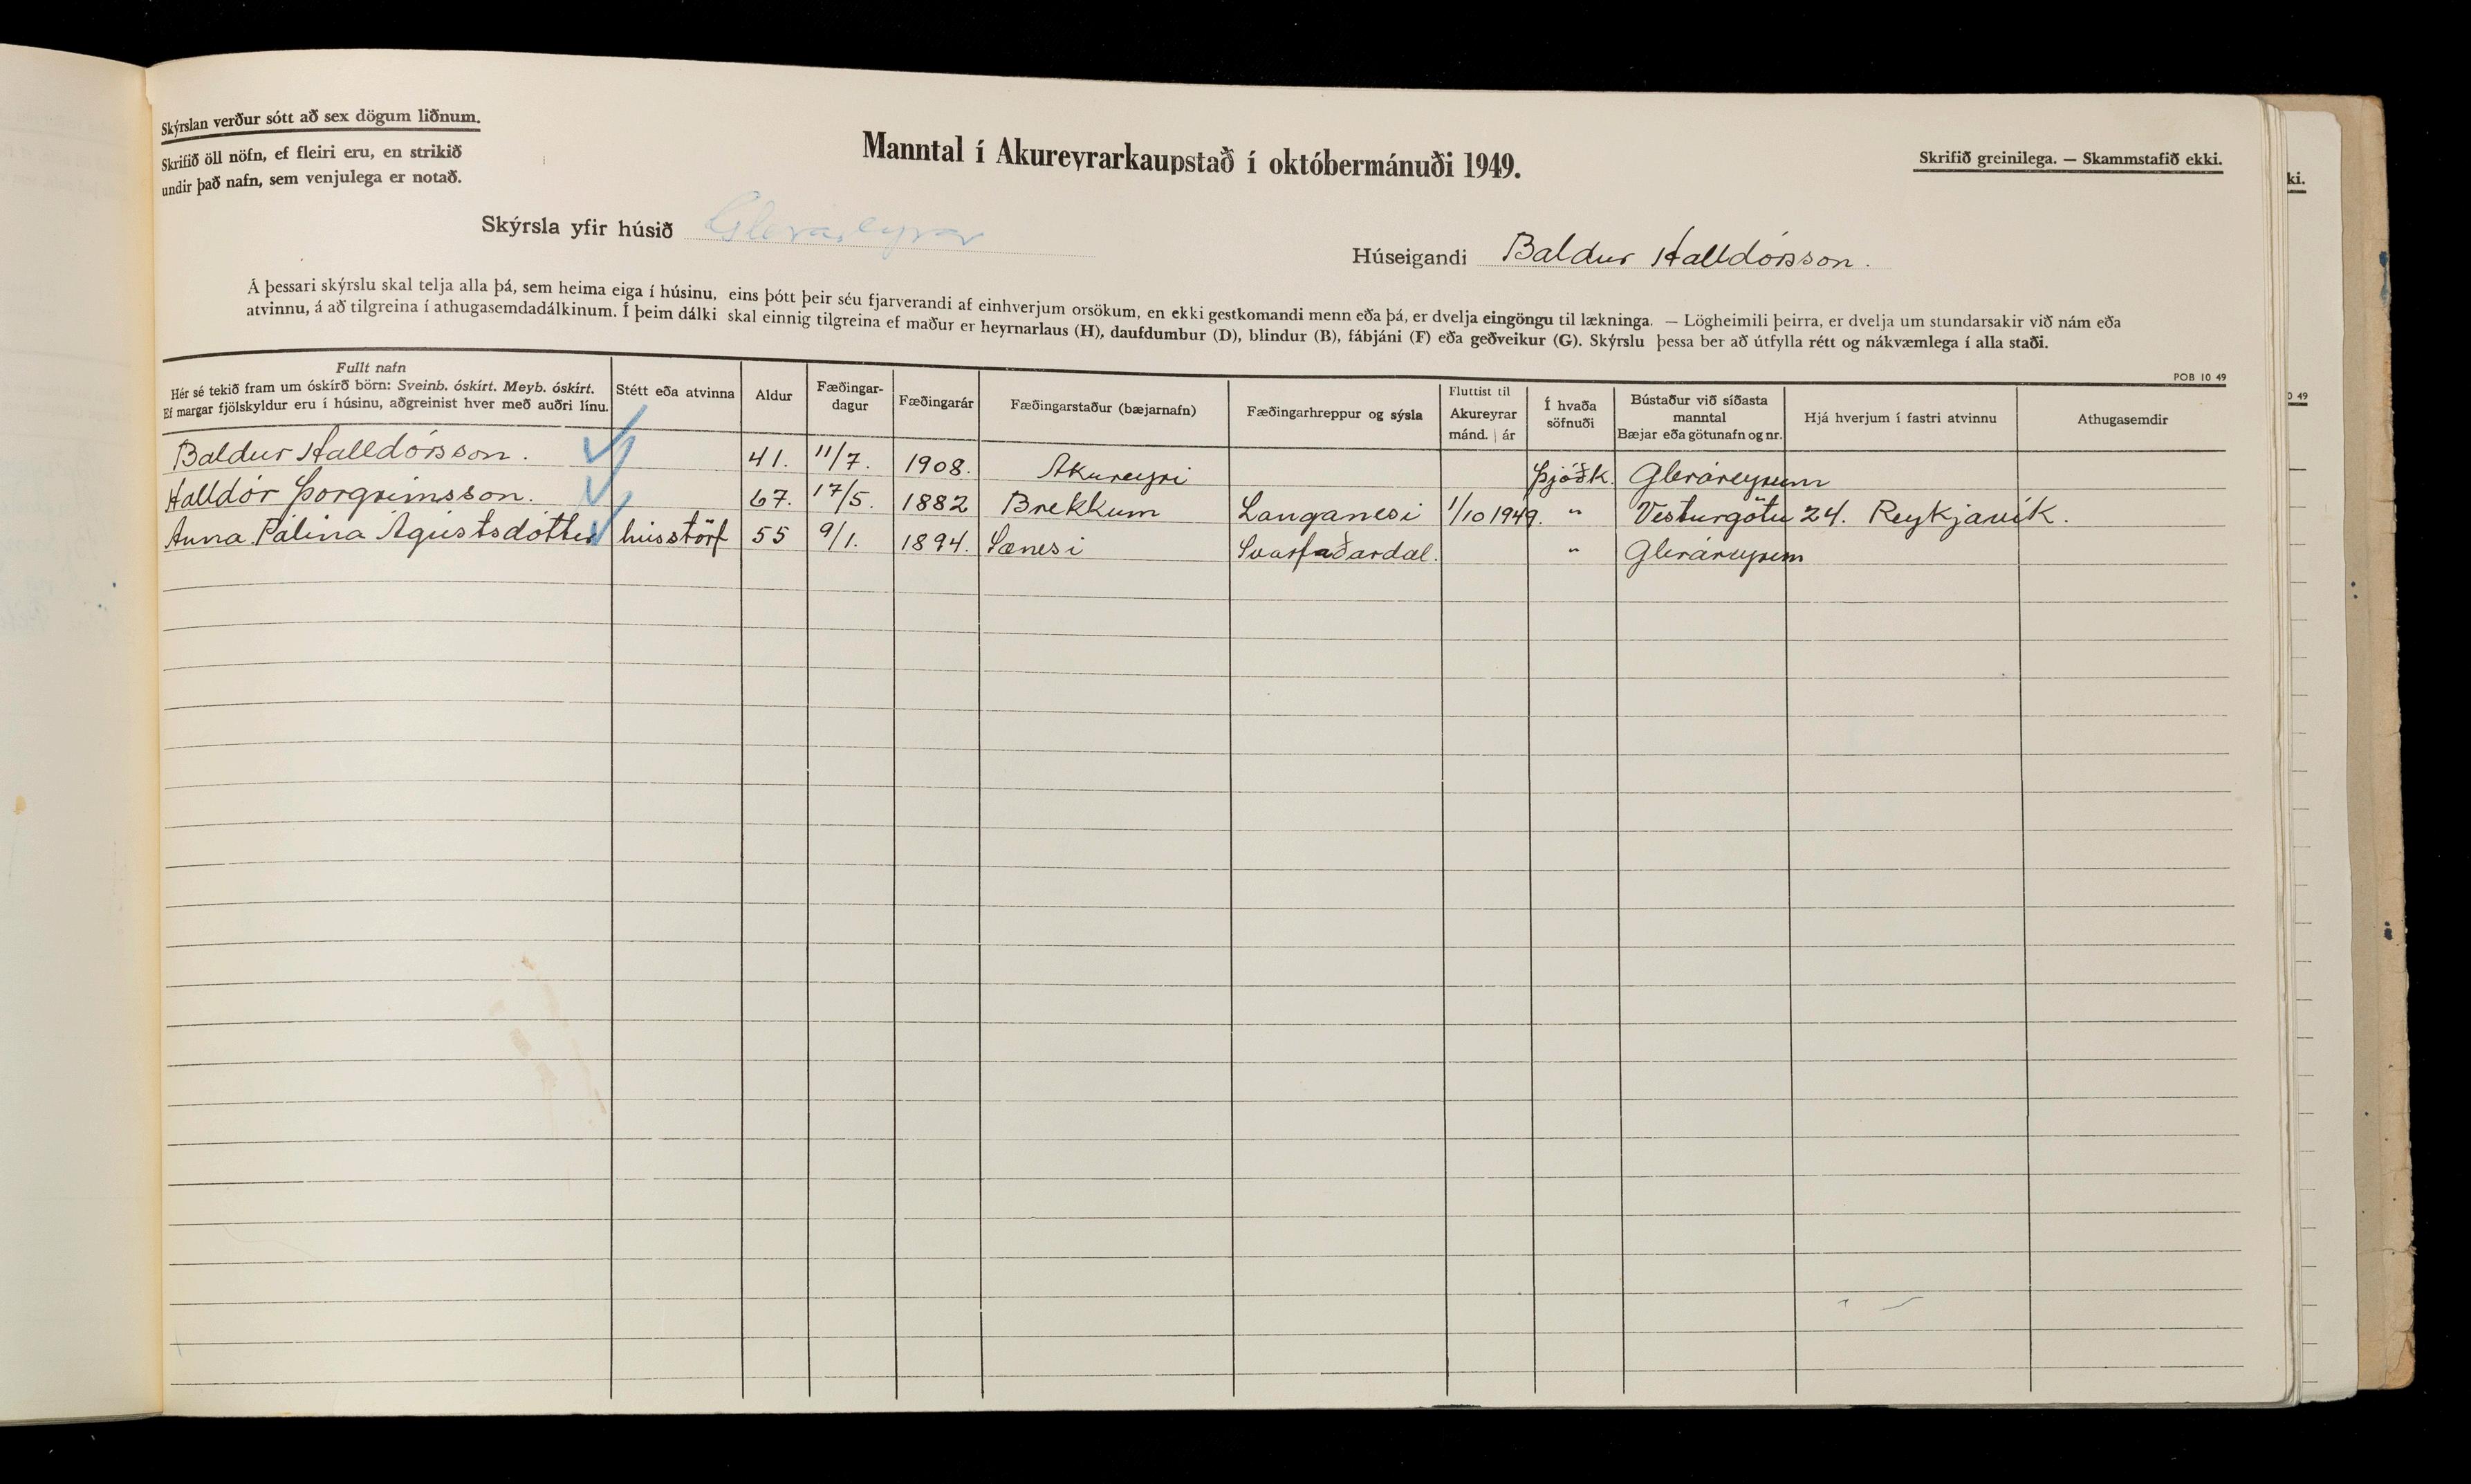 Skýrslan verður sótt að sex dögum liðnum.
Skrifið öll nöfn, ef fleiri eru, en strikið
undir það nafn, sem venjulega er notað.
Manntal í Akureyrarkaupstað í októbermánuði 1949.
Skrifið greinilega. — Skammstafið ekki.
Skýrsla yfir húsið Gleráreyrar
Húseigandi Baldur Halldórsson.
Á þessari skýrslu skal telja alla þá, sem heima eiga í húsinu, eins þótt þeir séu fjarverandi af einhverjum orsökum, en ekki gestkomandi menn eða þá, er dvelja eingöngu til lækninga. — Lögheimili þeirra, er dvelja um stundarsakir við nám eða
atvinnu, á að tilgreina í athugasemdadálkinum. Í þeim dálki skal einnig tilgreina ef maður er heyrnarlaus (H), daufdumbur (D), blindur (B), fábjáni (F) eða geðveikur (G). Skýrslu þessa ber að útfylla rétt og nákvæmlega í alla staði.
POB 10 49
Fullt nafn
Hér sé tekið fram um óskírð börn: Sveinb. óskírt. Meyb. óskírt.
Ef margar fjölskyldur eru í húsinu, aðgreinist hver með auðri línu.
Stétt eða atvinna
Aldur
Fæðingar-
dagur
Fæðingarár
Fæðingarstaður (bæjarnafn)
Fæðingarhreppur og sýsla
Fluttist til
Akureyrar
mánd. | ár
Í hvaða
söfnuði
Bústaður við síðasta
manntal
Bæjar eða götunafn og nr.
Hjá hverjum í fastri atvinnu
Athugasemdir
Baldur Halldórsson. 41. 11/7. 1908. Akureyri Þjóðk. Gleráreyrum
Halldór Þorgrímsson. 67. 17/5. 1882 Brekkum Langanesi 1/10 1949. " Vesturgötu 24. Reykjavík.
Anna Pálína Ágústsdóttir hússtörf 55 9/1. 1894. Sænesi Svarfaðardal. " Gleráreyrum
ki.
0 49